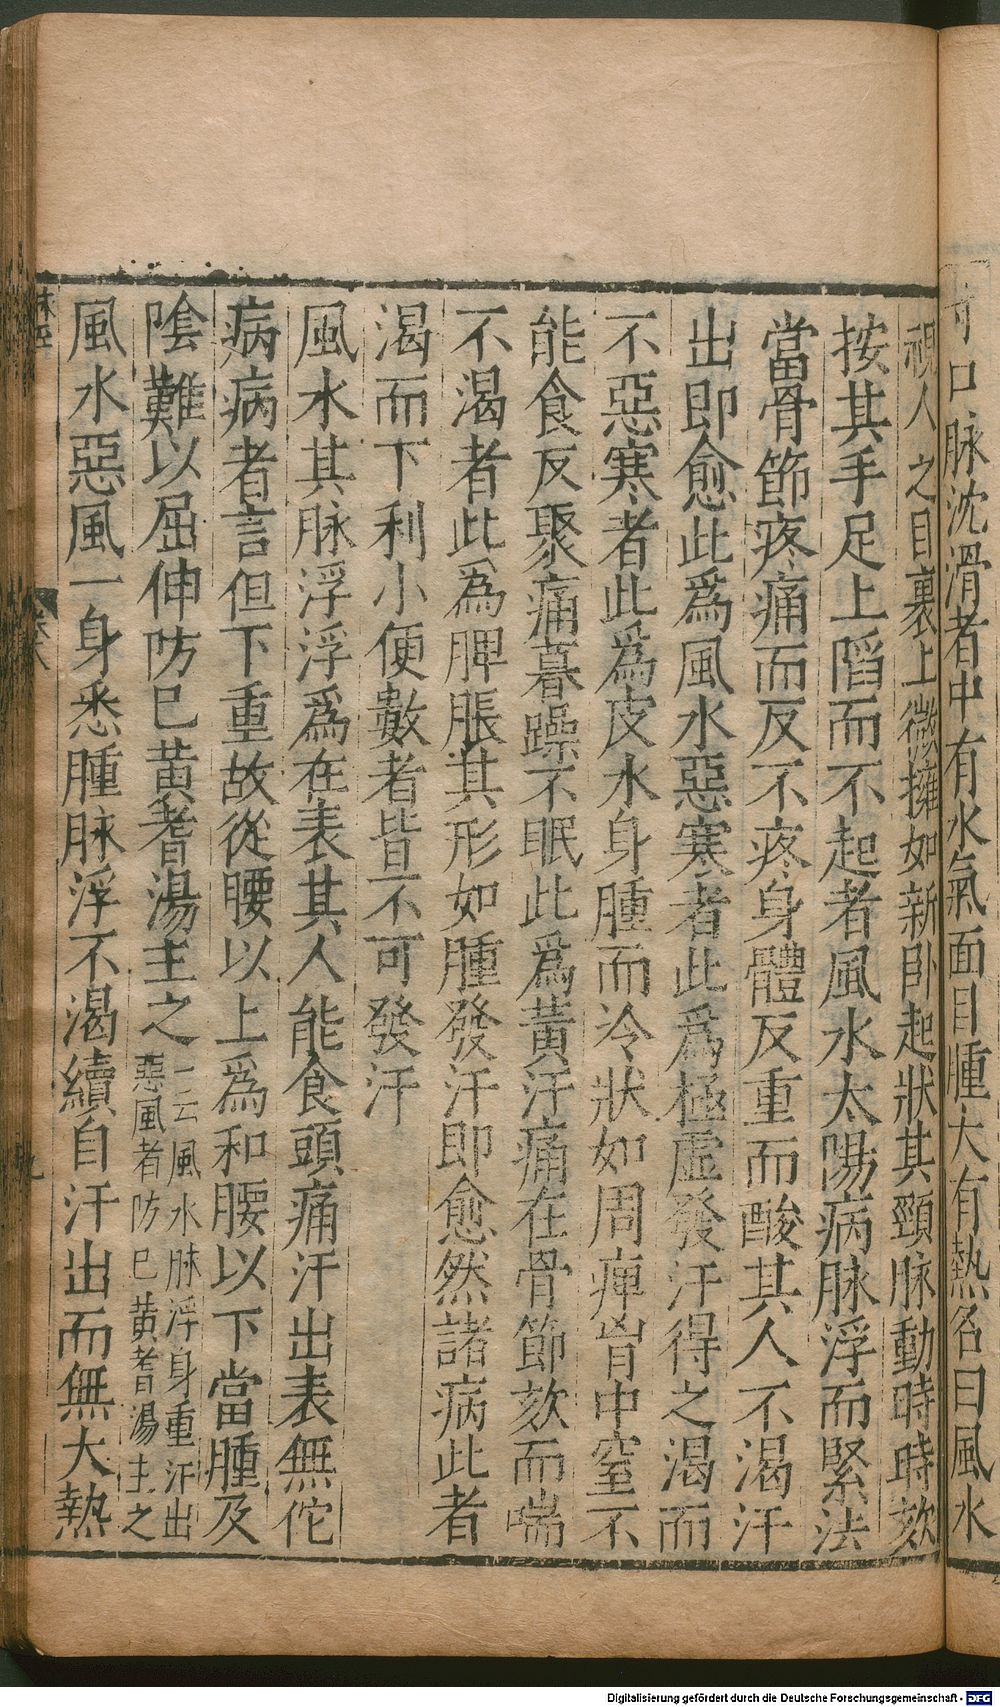 寸口脉沈滑者中有水氣面目腫大有熱名曰風水
視人之目裹上微擁如新卧起狀其頸脉動時時欬
按其手足上陷而不起者風水太陽病脉浮而緊法
當骨節疼痛而反不疼身體反重而酸其人不渴汗
出即愈此爲風水惡寒者此爲極虛發汗得之渴而
不惡寒者此爲皮水身腫而冷狀如周痺胷中窒不
能食反聚痛暮躁不眠此爲黃汗痛在骨節欬而喘
不渴者此爲脾脹其形如腫發汗即愈然諸病此者
渴而下利小便數者皆不可發汗
風水其脉浮浮爲在表其人能食頭痛汗出表無佗
病病者言但下重故從腰以上爲和腰以下當腫及
陰難以屈伸防已黃耆湯主之一云風水脉浮身重汗出惡風者防已黃耆湯主之
風水惡風一身悉腫脉浮不渴續自汗出而無大熱
脉經 卷八 九
Digitalisierung gefördert durch die Deutsche Forschungsgemeinschaft - DFG